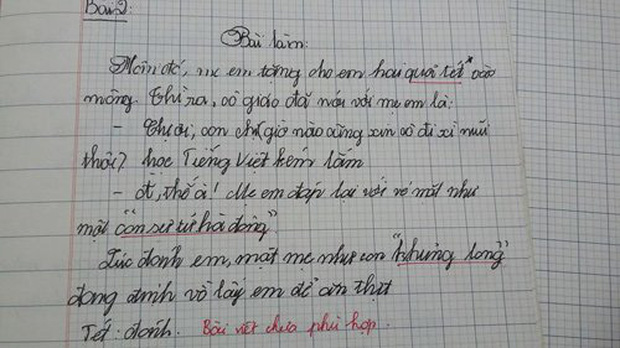 Bài 2:
Bài làm:
Hôm đó, mẹ em tặng cho em hai quả tét* vào
mông. Thì ra, cô giáo đã nói với mẹ em là:
- Chị ơi, con chị giờ nào cũng xin cô đi xì mũi
thôi? học Tiếng Việt kém lắm
- Ờ, thế à! Mẹ em đáp lại với vẻ mặt như
một "con sư tử hà đông"
Lúc đánh em, mặt mẹ như con "khủng long"
đang định vồ lấy em để ăn thịt
Tét: đánh. Bài viết chưa phù hợp.